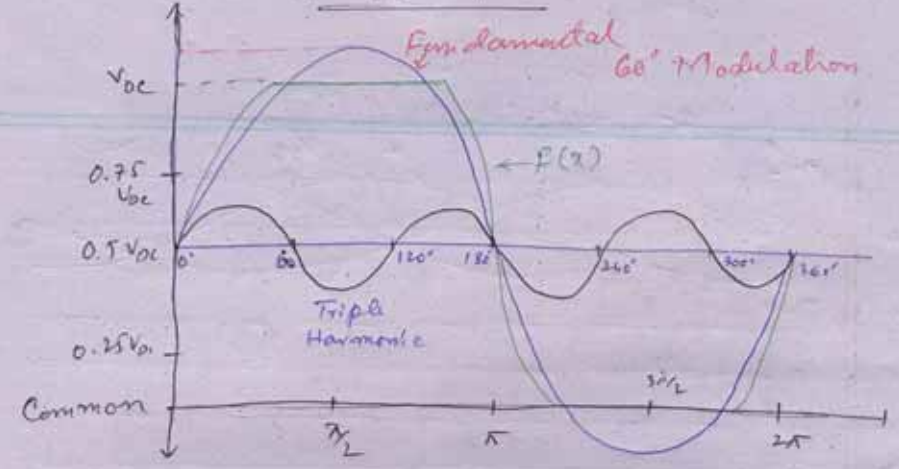 Fundamental
60° Modulation
VDC
F(x)
0.75
VDC
0.5 VDC
0°
60
120°
180°
240°
300°
360°
Triple
Harmonic
0.25VDC
3π/2
Common
π/2
π
2π